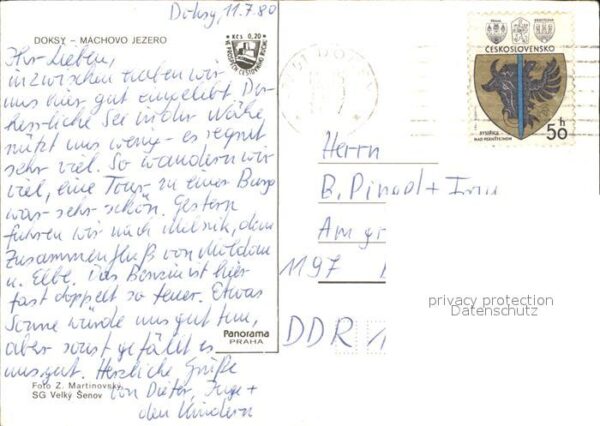 Doksy, 11.7.80
DOKSY – MACHOVO JEZERO
Kčs 0,20
Ihr Lieben,
inzwischen haben wir
uns hier gut eingelebt. Der
herrliche See in der Nähe,
nützt uns wenig – es regnet
sehr viel. So wandern wir
viel, eine Tour zu einer Burg
war sehr schön. Gestern
fuhren wir nach Melnik, dem
Zusammenfluß von Moldau
u. Elbe. Das Benzin ist hier
fast doppelt so teuer. Etwas
Sonne würde uns gut tun,
aber sonst gefällt es
uns gut. Herzliche Grüße
von Dieter, Inge +
den Kindern
Foto Z. Martinovský
SG Velký Šenov
Panorama
PRAHA
ČESKOSLOVENSKO
50 h
BYSTŘICE
NAD PERNŠTEJNEM
Herrn
B. Pinoel +
Am
1197
DDR
privacy protection
Datenschutz